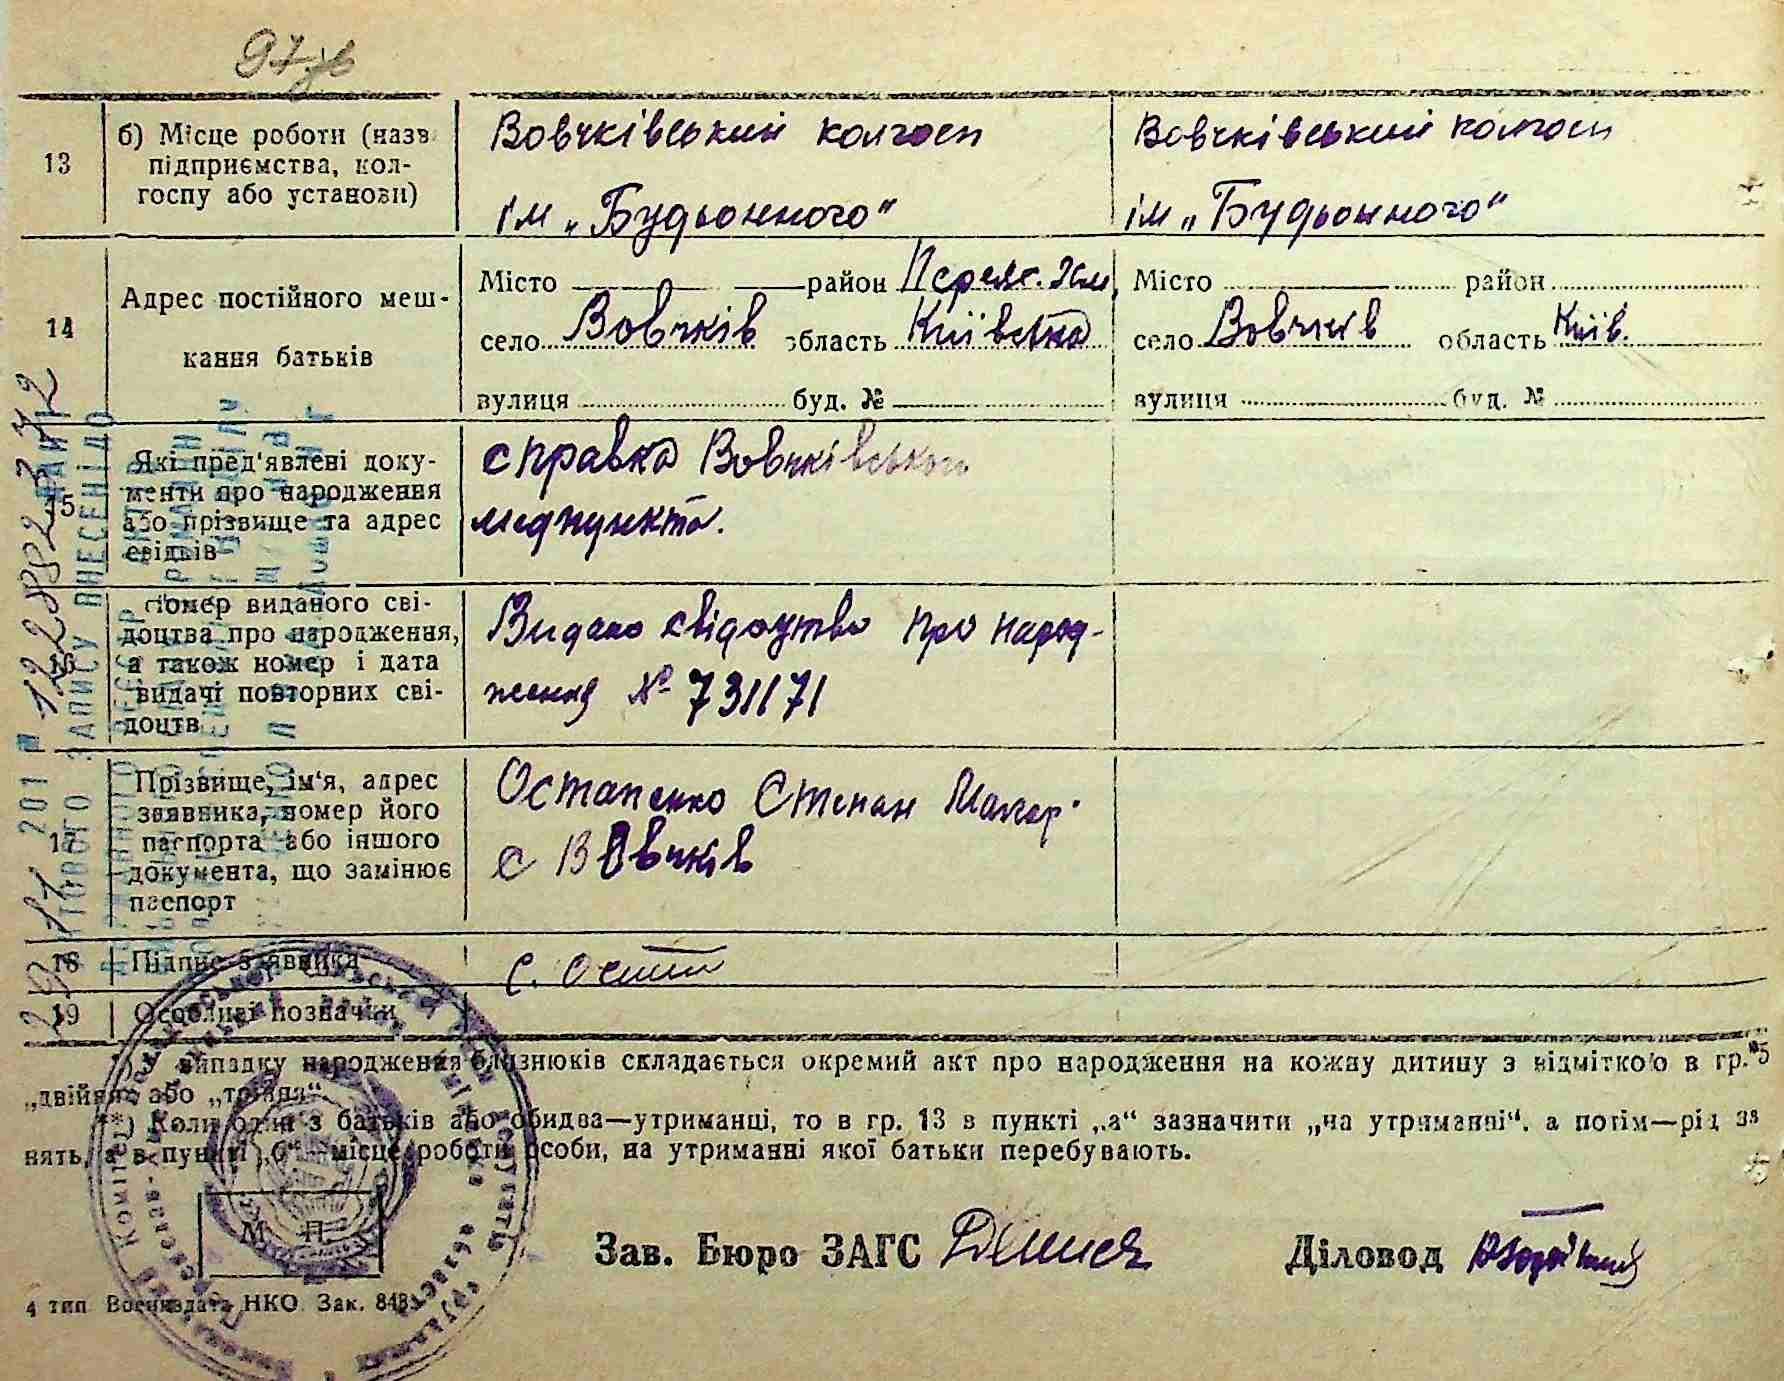 97 зв
13
б) Місце роботи (назв
підприємства, кол-
госпу або установи)
Вовчківський колгосп
ім „Будьонного“
Вовчківський колгосп
ім „Будьонного“
14
Адрес постійного меш-
кання батьків
Місто район Переяс. Хм.
село Вовчків область Київська
вулиця буд. №
Місто район
село Вовчків область Київ.
вулиця буд. №
15
Які пред‘явлені доку-
менти про народження
або прізвище та адрес
свідків
справка Вовчківського
медпункта.
16
Номер виданого сві-
доцтва про народження,
а також номер і дата
видачі повторних сві-
доцтв
Видано свідоцтво про народ-
ження № 731171
17
Прізвище, ім‘я, адрес
заявника, номер його
паспорта або іншого
документа, що замінює
паспорт
Остапенко Степан Макар.
с Вовчків
18
Підпис заявника
С. Остап
19
Особливі позначки
*) У випадку народження близнюків складається окремий акт про народження на кожну дитину з відміткою в гр. 5
„двійня“ або „трійня“.
**) Коли один з батьків або обидва—утриманці, то в гр. 13 в пункті „а“ зазначити „на утриманні“, а потім—рід за
нять, а в пункті „б“—місце роботи особи, на утриманні якої батьки перебувають.
М П
Зав. Бюро ЗАГС
Діловод
4 тип Воениздата НКО Зак. 848